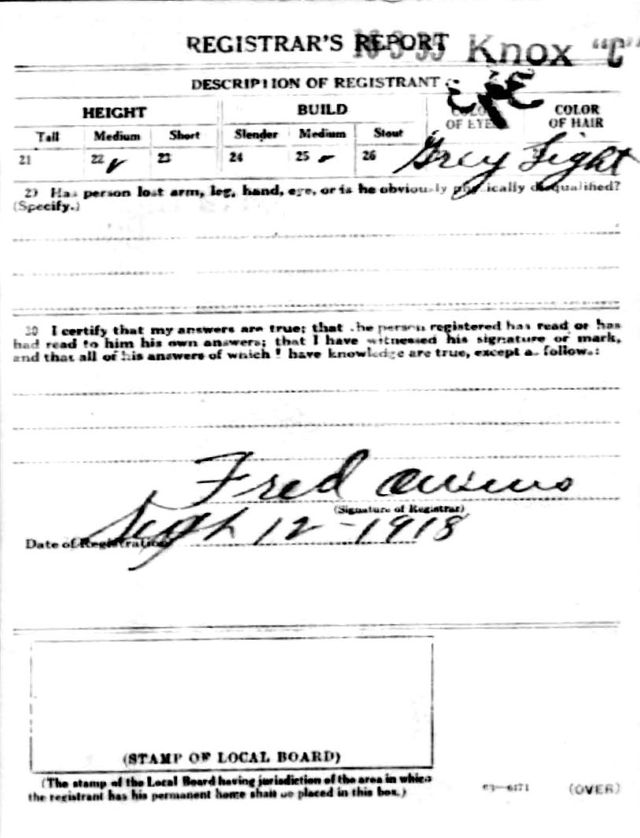 REGISTRAR'S REPORT Knox "C"
DESCRIPTION OF REGISTRANT
HEIGHT BUILD COLOR OF EYES COLOR OF HAIR
Tall Medium Short Slender Medium Stout
21 22 ✓ 23 24 25 ✓ 26 Grey Light
29 Has person lost arm, leg, hand, eye, or is he obviously physically disqualified?
(Specify.)
30 I certify that my answers are true; that the person registered has read or has
had read to him his own answers; that I have witnessed his signature or mark,
and that all of his answers of which I have knowledge are true, except as follows:
Fred
(Signature of Registrar)
Date of Registration Sept 12-1918
(STAMP OF LOCAL BOARD)
(The stamp of the Local Board having jurisdiction of the area in which
the registrant has his permanent home shall be placed in this box.)
03-6171 (OVER)